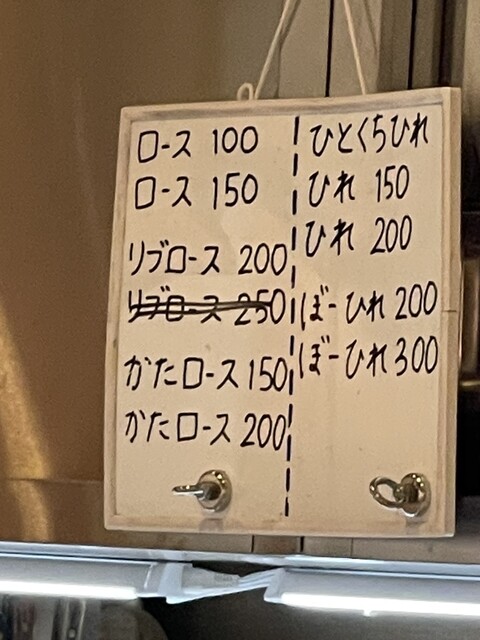 ロース 100
ロース 150
リブロース 200
リブロース 250
かたロース 150
かたロース 200
ひとくちひれ
ひれ 150
ひれ 200
ぼーひれ 200
ぼーひれ 300